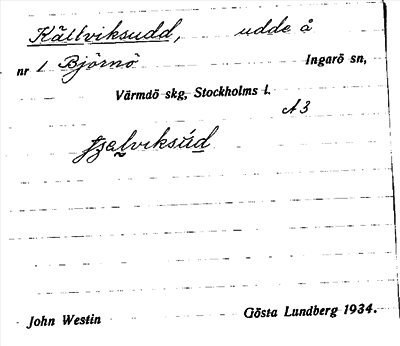 Källviksudd, udde å
nr 1 Björnö Ingarö sn,
Värmdö skg, Stockholms l.
A3
John Westin Gösta Lundberg 1934.